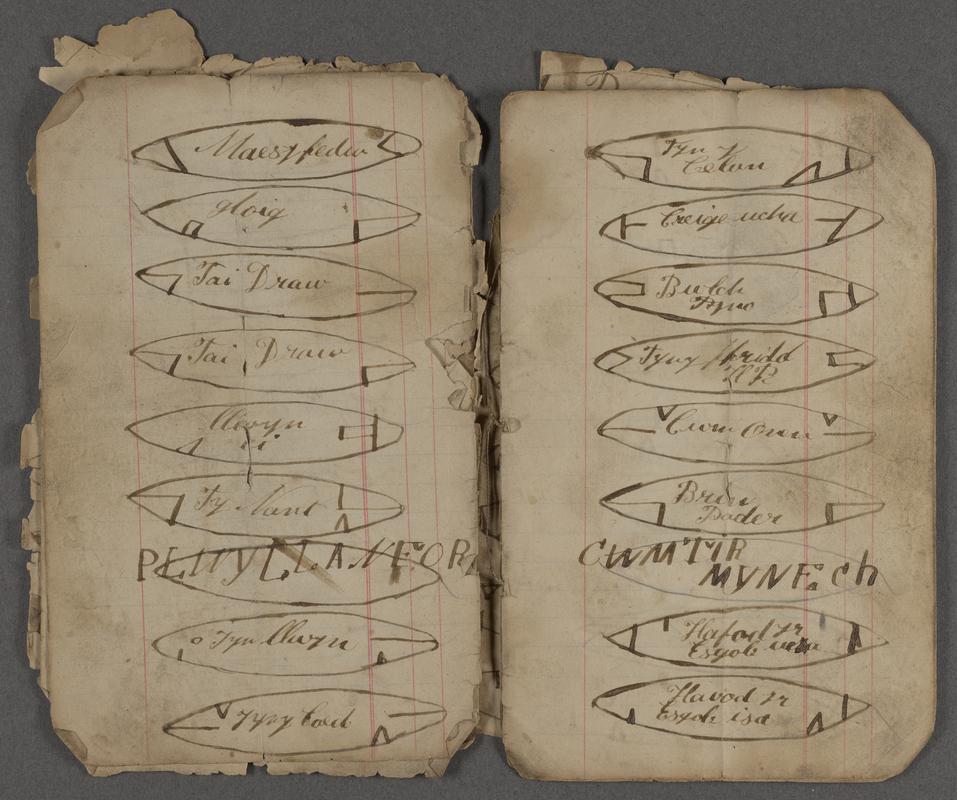 Maesyfedw
gloig
Tai Draw
Tai Draw
llwyn
ci
Ty Nant
PENYLLANFOR
o Tyn llwyn
Tyny Coed
Tyn y
Celun
Creige ucha
Bwlch
Tyny ffridd
Cwm Owen
Bryn
Pader
CWMTIR
MYNECh
Hafod yr
Esgob ucha
Havod yr
Esgob isa